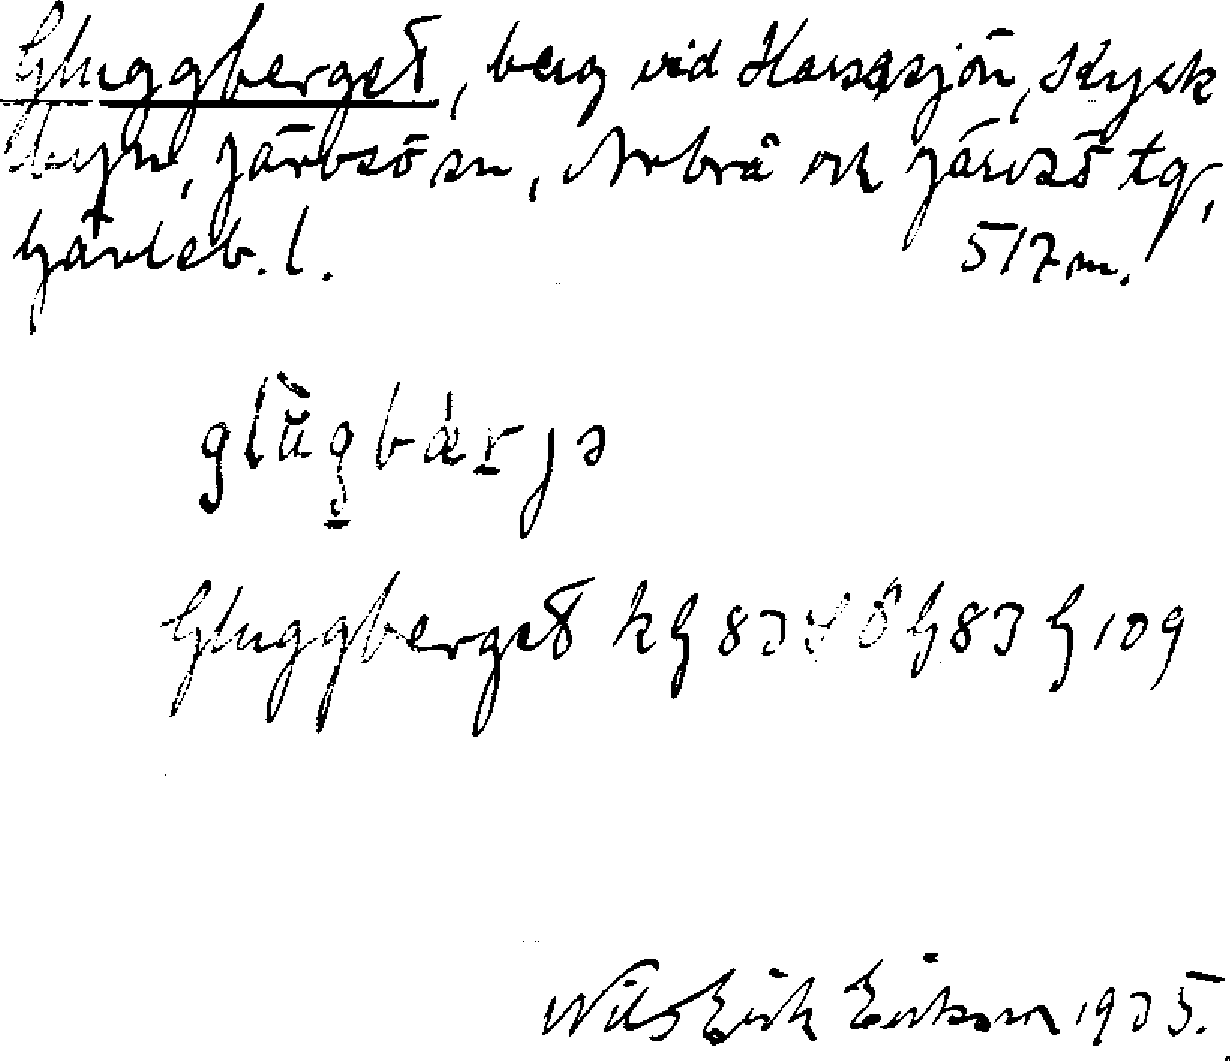 Gluggberget, berg vid Harsasjön, Kyrk
byn, Järvsö sn, Arbrå och Järvsö tg,
Gävleb. l. 517 m.
glùgbærjə
Gluggberget kG 83 G 109
Nils Erik Erikson 1935.